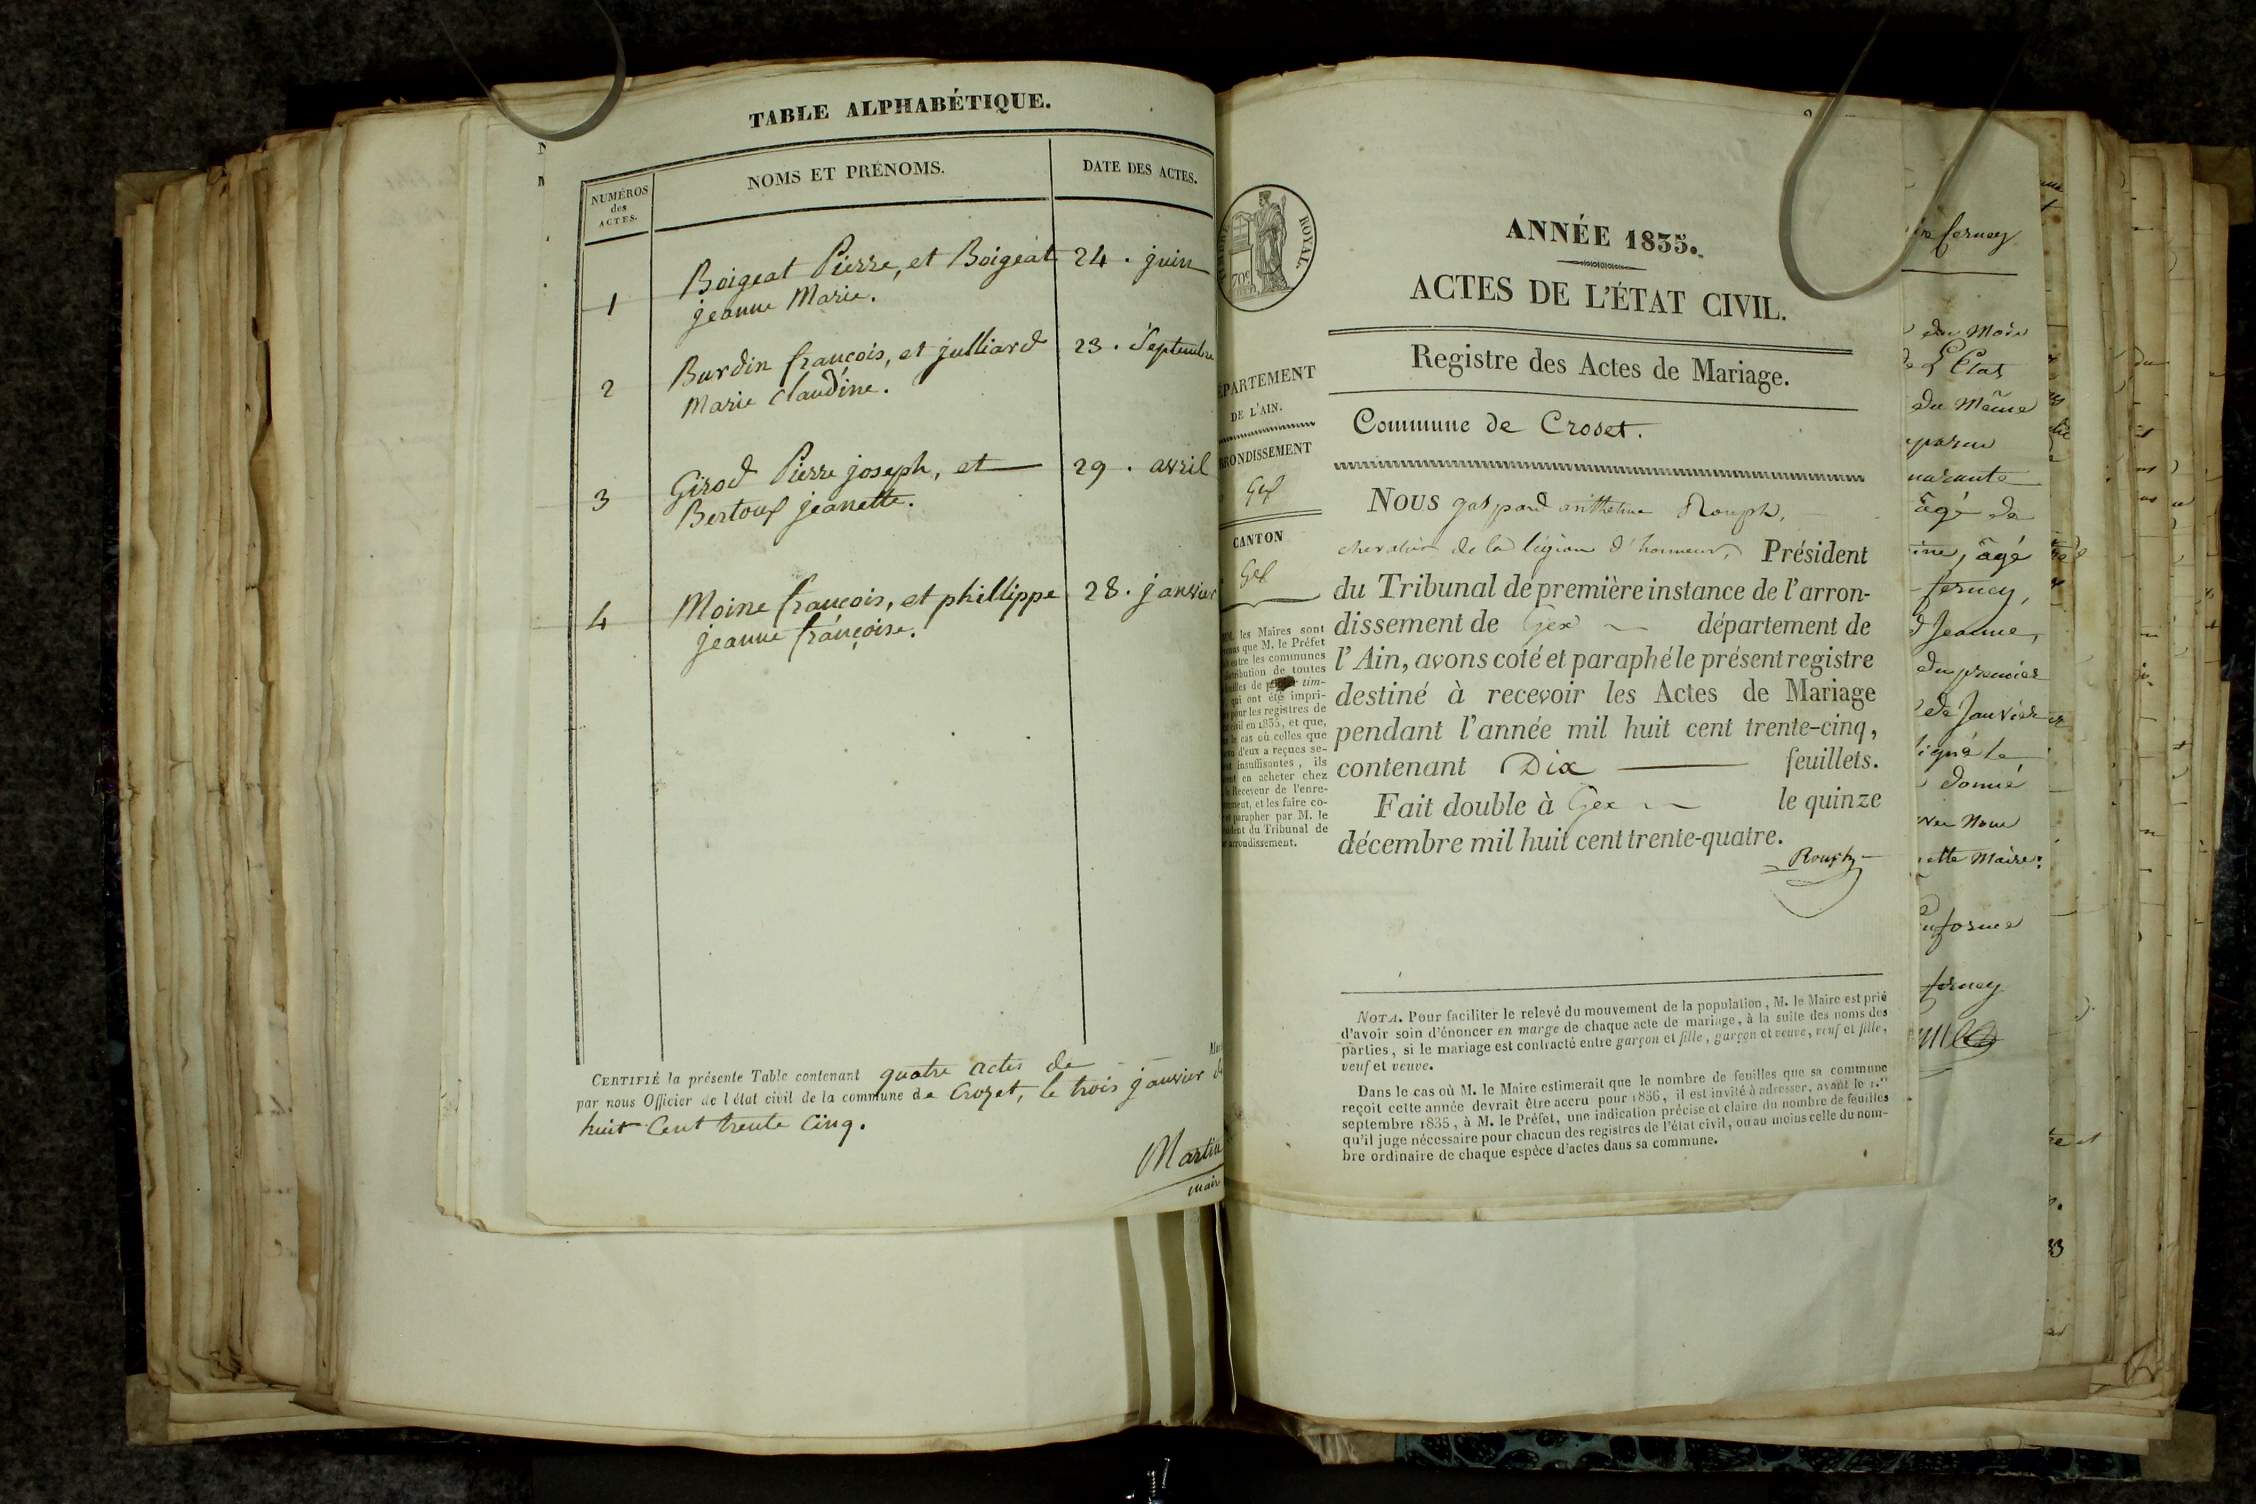 TABLE ALPHABÉTIQUE.
NUMÉROS
des
ACTES.
NOMS ET PRÉNOMS.
DATE DES ACTES.
1
Boigeat Pierre, et Boigeat
24. juin
jeanne Marie.
2
Burdin françois, et julliard
23. Septembre
Marie Claudine.
3
Girod Pierre joseph, et
29. avril
Bertoux jeanette.
4
Moine françois, et phillippe
28. janvier
jeanne françoise.
CERTIFIÉ la présente Table contenant quatre actes de
par nous Officier de l'état civil de la commune de Crozet, le trois janvier
huit Cent trente Cinq.
Martin
maire
ROYAL.
70c
ANNÉE 1835.
ACTES DE L'ÉTAT CIVIL.
Registre des Actes de Mariage.
Commune de Croset.
DÉPARTEMENT
DE L'AIN.
ARRONDISSEMENT
Gex
CANTON
Gex
les Maires sont
que M. le Préfet
entre les communes
distribution de toutes
feuilles de tim-
qui ont été impri-
pour les registres de
civil en 1835, et que,
le cas où celles que
d'eux a reçues se-
insuffisantes, ils
en acheter chez
Receveur de l'enre-
et les faire co-
parapher par M. le
du Tribunal de
arrondissement.
NOUS gaspard Rouph,
chevalier de la légion d'honneur, Président
du Tribunal de première instance de l'arron-
dissement de Gex département de
l'Ain, avons coté et paraphé le présent registre
destiné à recevoir les Actes de Mariage
pendant l'année mil huit cent trente-cinq,
contenant Dix feuillets.
Fait double à Gex le quinze
décembre mil huit cent trente-quatre.
Rouph
NOTA. Pour faciliter le relevé du mouvement de la population, M. le Maire est prié
d'avoir soin d'énoncer en marge de chaque acte de mariage, à la suite des noms des
parties, si le mariage est contracté entre garçon et fille, garçon et veuve, veuf et fille,
veuf et veuve.
Dans le cas où M. le Maire estimerait que le nombre de feuilles que sa commune
reçoit cette année devrait être accru pour 1836, il est invité à adresser, avant le 1.er
septembre 1835, à M. le Préfet, une indication précise et claire du nombre de feuilles
qu'il juge nécessaire pour chacun des registres de l'état civil, ou au moins celle du nom-
bre ordinaire de chaque espèce d'actes dans sa commune.
ferney
du Mois
L'Etat
du Même
âgé de
âgé
ferney,
Jeanne,
du premier
de Janvier
donné
Nous
Maire:
ferney